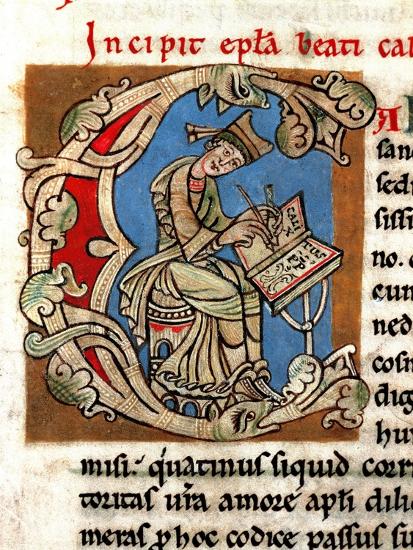 Incipit epła beati cal
A
sanc
sedi
sissi
no.
cun
ned
cosm
dig
hun
misi. quatinus siquid corr
toritas ur̃a amore apłi dili
meras p hoc codice passus su